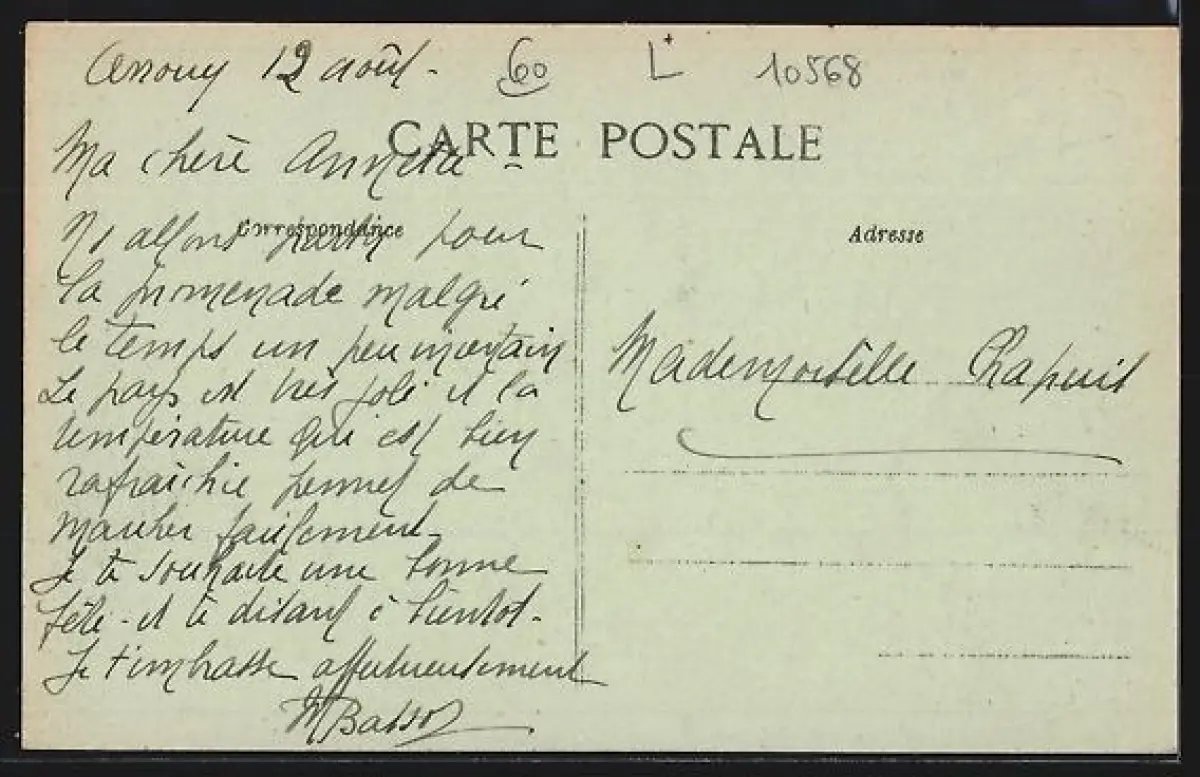 Cernouy 12 août - 60 L+ 10568
CARTE POSTALE
Ma chère Annette
Correspondance
Adresse
Ns allons partir pour
la promenade malgré
le temps un peu incertain
Le pays est très joli et la
température qui est bien
rafraichie permet de
marcher facilement.
Je te souhaite une bonne
fête - et te disant à bientot.
Je t'embrasse affectueusement
M Bassot
Mademoiselle Chapuis